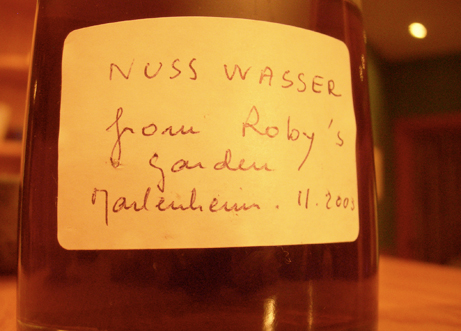 NUSS WASSER
from Roby's
garden
Marlenheim. 11.2003